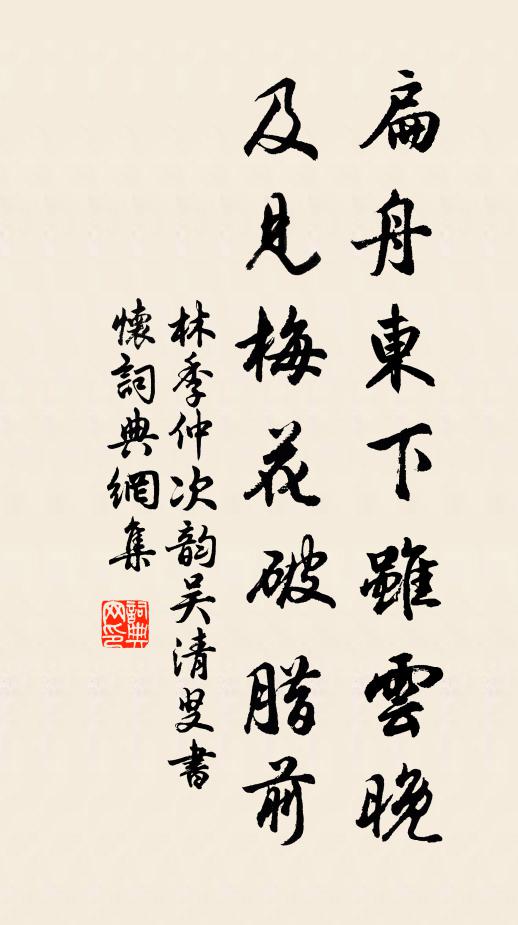 扁舟東下雖雲晚
及見梅花破腊前
林季仲次韵吴清叟書
懷詞典網集
詞典网印